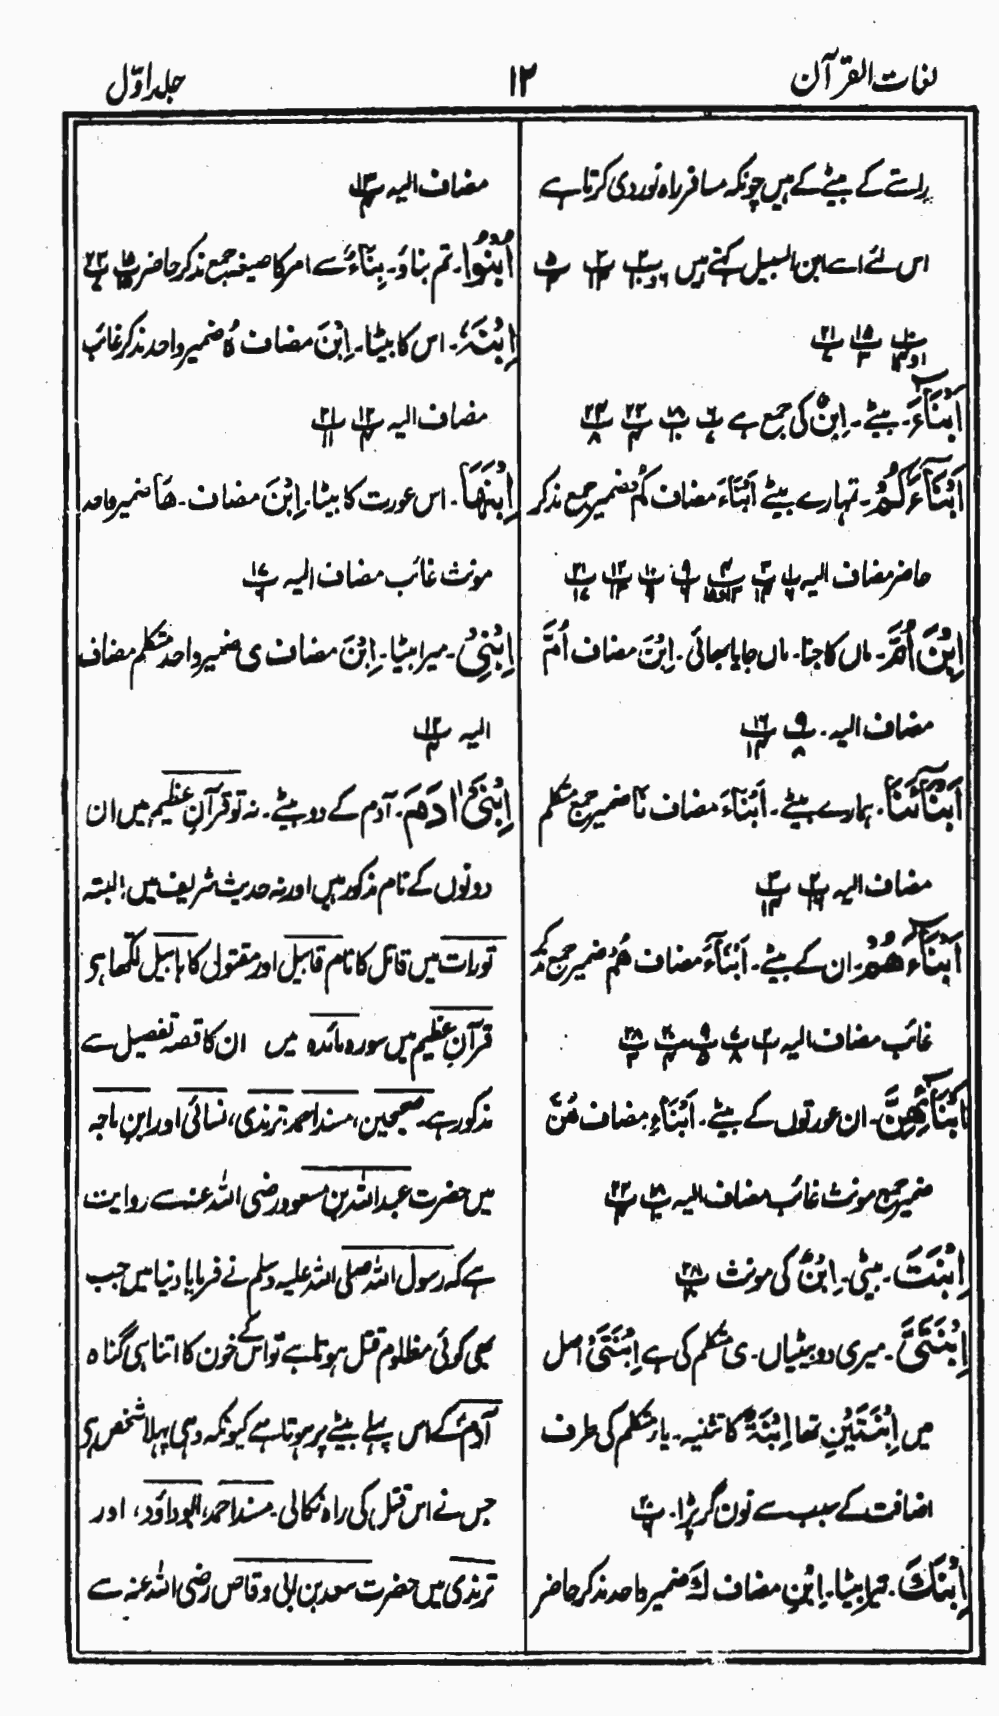 لغات القرآن
۱۲
جلد اوّل
راستے کے بیٹے کے ہیں چونکہ مسافر راہ نوردی کرتا ہے
اس لئے اسے ابن السبیل کہتے ہیں
اَبْنَآءَ۔ بیٹے۔ اِبْنٌ کی جمع ہے
اَبْنَآءَکُمْ۔ تمہارے بیٹے اَبْنَآءَ مضاف کُمْ ضمیر جمع مذکر
حاضر مضاف الیہ
اِبْنَ اُمَّ۔ ماں کا جنا۔ ماں جایا بھائی۔ اِبْنَ مضاف اُمَّ
مضاف الیہ۔
اَبْنَآءَنَا۔ ہمارے بیٹے۔ اَبْنَآءَ مضاف نَا ضمیر جمع متکلم
مضاف الیہ
اَبْنَآءَھُمْ۔ ان کے بیٹے۔ اَبْنَآءَ مضاف ھُمْ ضمیر جمع مذکر
غائب مضاف الیہ
اَبْنَآئِھِنَّ۔ ان عورتوں کے بیٹے۔ اَبْنَآءِ مضاف ھُنَّ
ضمیر جمع مونث غائب مضاف الیہ
اِبْنَتَ۔ بیٹی۔ اِبْنٌ کی مونث
اِبْنَتَیَّ۔ میری دو بیٹیاں۔ ی متکلم کی ہے اِبْنَتَیَّ اصل
میں اِبْنَتَیْنِ تھا اِبْنَۃٌ کا تثنیہ۔ یاء متکلم کی طرف
اضافت کے سبب سے نون گر پڑا۔
اِبْنَكَ۔ تیرا بیٹا۔ اِبْنِ مضاف كَ ضمیر واحد مذکر حاضر
مضاف الیہ
اُبْنُوْا۔ تم بناؤ۔ بِنَآءٌ سے امر کا صیغہ جمع مذکر حاضر
اِبْنَہٗ۔ اس کا بیٹا۔ اِبْنَ مضاف ہٗ ضمیر واحد مذکر غائب
مضاف الیہ
اِبْنَھَا۔ اس عورت کا بیٹا۔ اِبْنَ مضاف۔ ھَا ضمیر واحد
مونث غائب مضاف الیہ
اِبْنِیْ۔ میرا بیٹا۔ اِبْنَ مضاف ی ضمیر واحد متکلم مضاف
الیہ
اِبْنَیْ اٰدَمَ۔ آدم کے دو بیٹے۔ نہ تو قرآنِ عظیم میں ان
دونوں کے نام مذکور ہیں اور نہ حدیث شریف میں البتہ
تورات میں قاتل کا نام قابیل اور مقتول کا ہابیل لکھا ہی
قرآنِ عظیم میں سورہ مائدہ میں ان کا قصہ تفصیل سے
مذکور ہے۔ صحیحین، مسند احمد، ترمذی، نسائی اور ابنِ ماجہ
میں حضرت عبد اللہ بن مسعود رضی اللہ عنہ سے روایت
ہے کہ رسول اللہ صلی اللہ علیہ وسلم نے فرمایا دنیا میں جب
بھی کوئی مظلوم قتل ہوتا ہے تو اس کے خون کا اتنا ہی گناہ
آدم کے اس پہلے بیٹے پر ہوتا ہے کیونکہ وہی پہلا شخص ہی
جس نے اس قتل کی راہ نکالی۔ مسند احمد، ابو داؤد، اور
ترمذی میں حضرت سعد بن ابی وقاص رضی اللہ عنہ سے